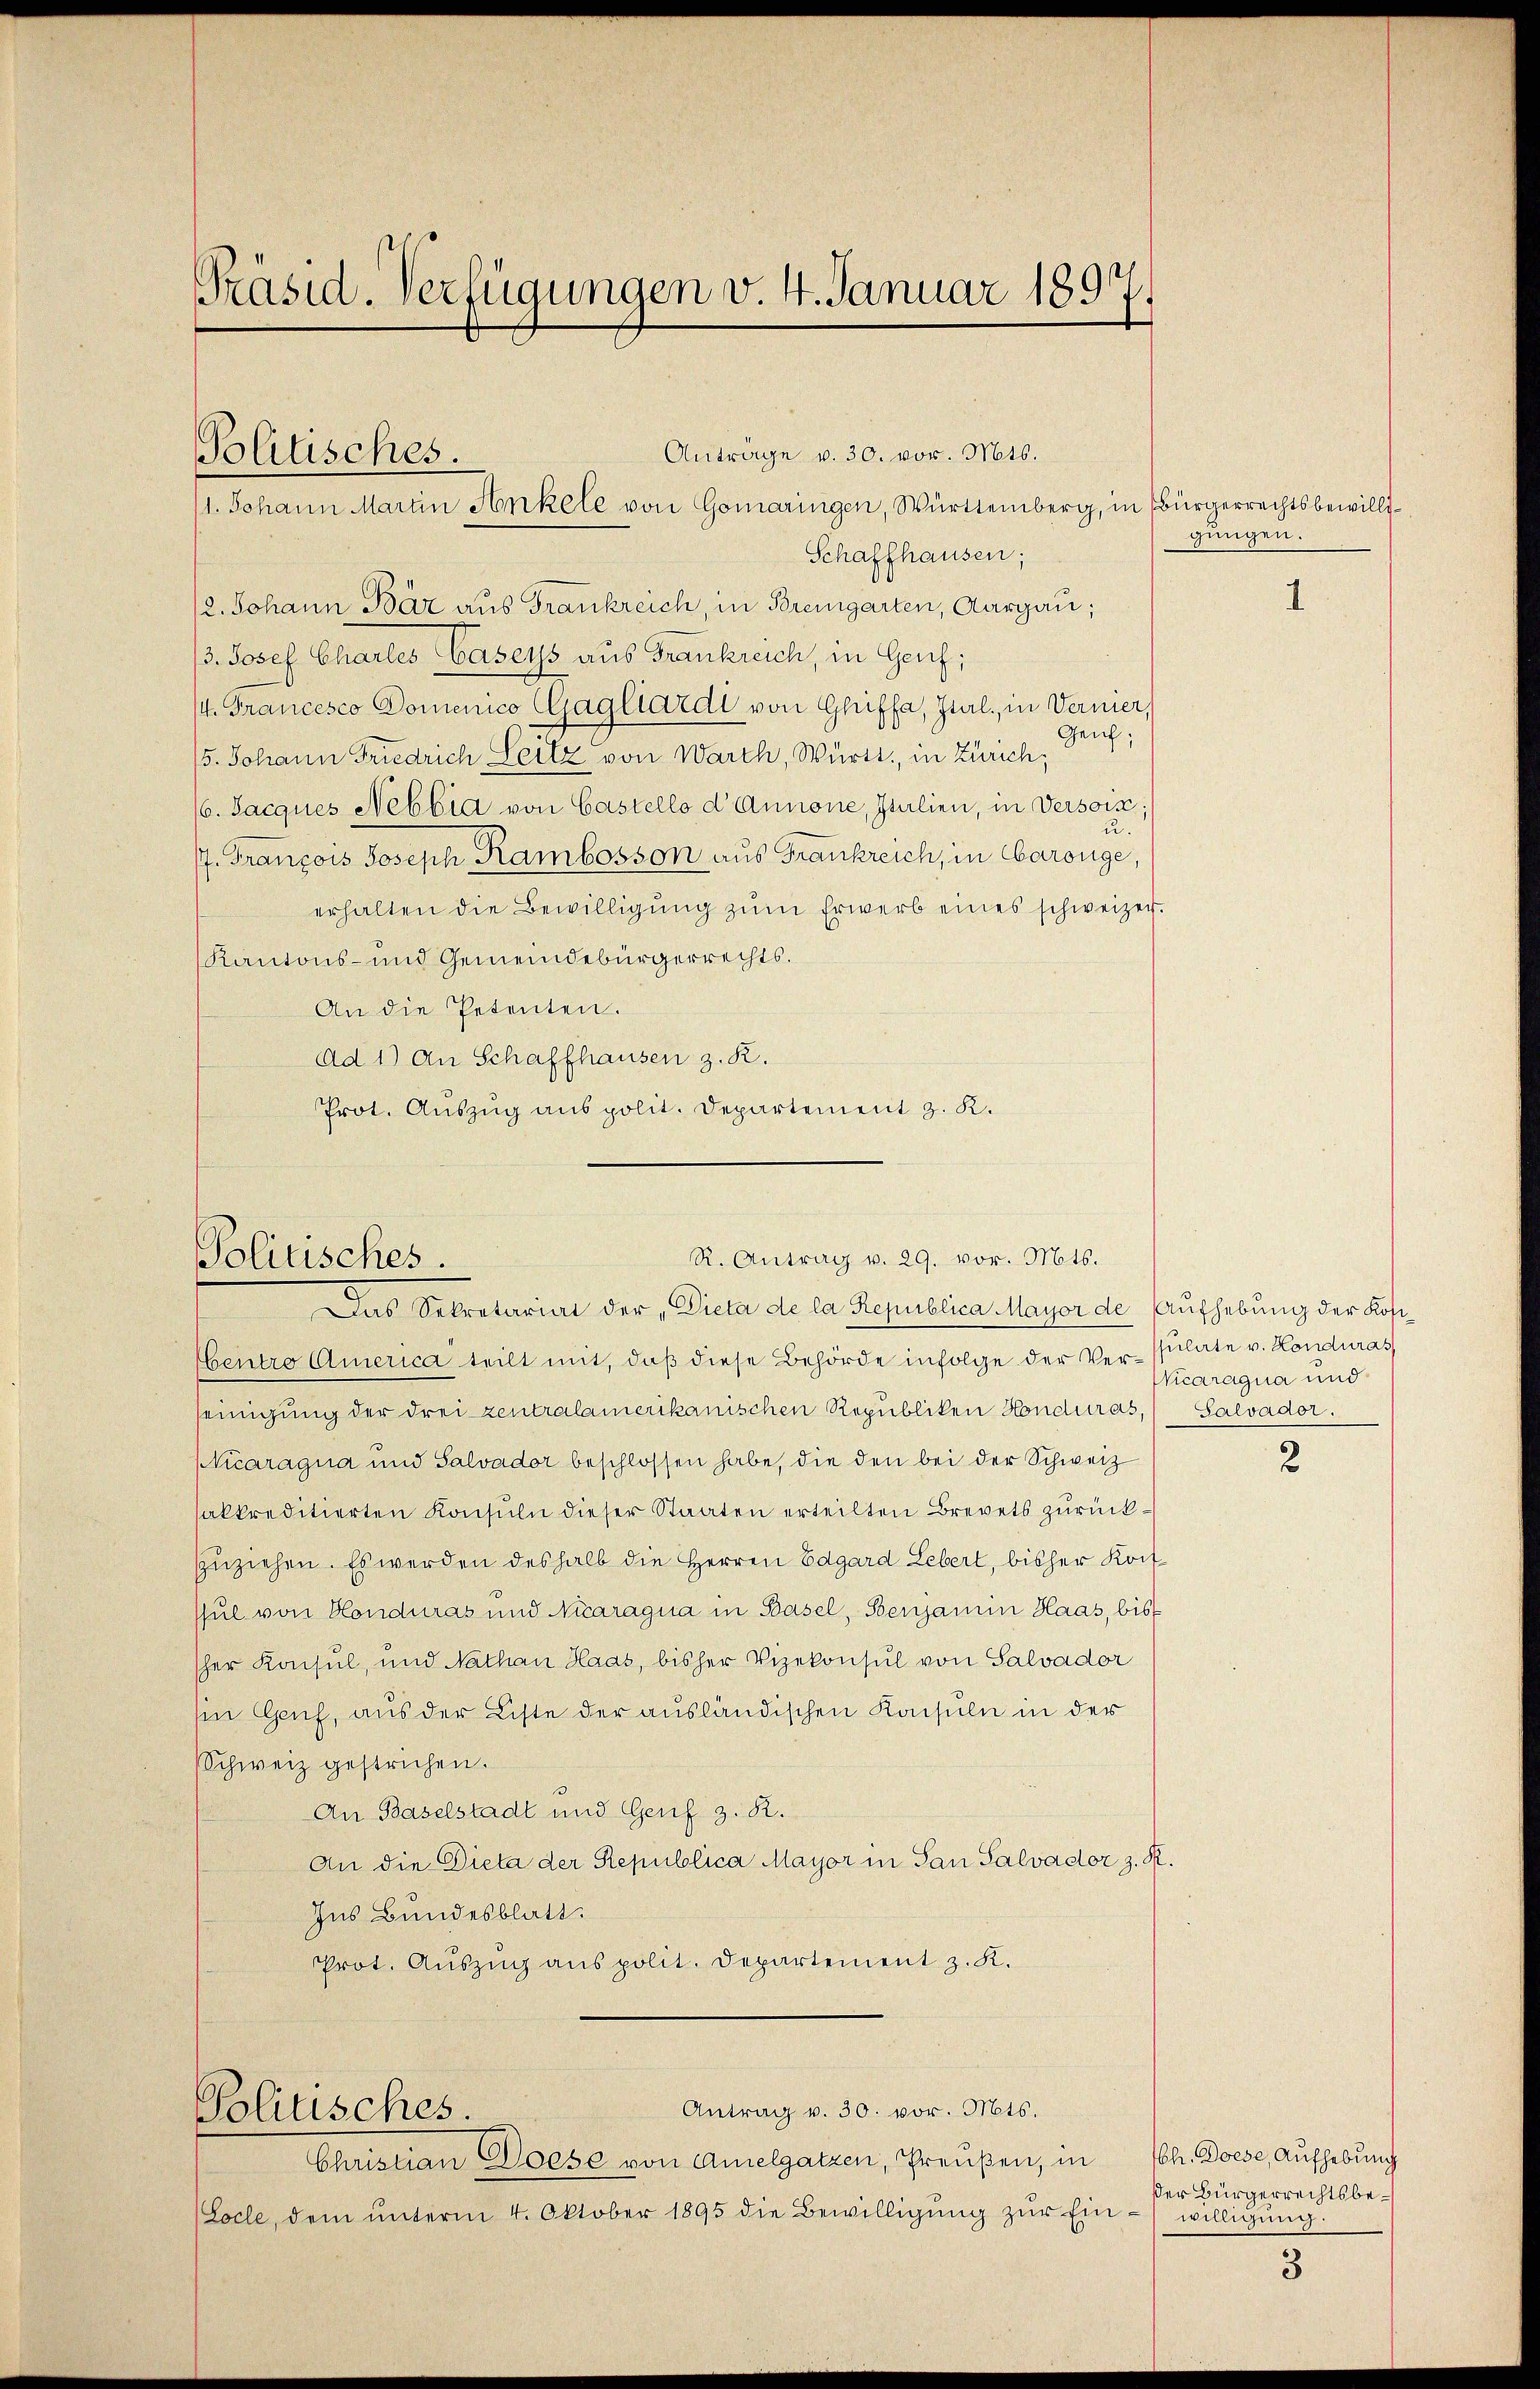 Präsid. Verfügungen v. 4. Januar 1897.
Politisches.
Anträge v. 30. vor. Mts.
1. Johann Martin Ankele von Gomaringen, Württemberg, in
Schaffhausen;
Bürgerrechtsbewilli-
gungen.
1
2. Johann Bär aus Frankreich, in Bremgarten, Aargau;
3. Josef Charles Caseys aus Frankreich, in Genf;
4. Francesco Domenico Gagliardi von Ghiffa, Ital., in Vernier,
Genf;
5. Johann Friedrich Seitz von Warth, Württ., in Zürich;
6. Jacques Nebbia von Castello d'Annone, Italien, in Versoix;
u.
7. François Joseph Rambosson aus Frankreich, in Carouge,
erhalten die Bewilligung zum Erwerb eines schweizer.
Kantons- und Gemeindebürgerrechts.
An die Petenten.
Ad 1) An Schaffhausen z. K.
Prot. Auszug ans polit. Departement z. K.
Politisches.
R. Antrag v. 29. vor. Mts.
Das Sekretariat der "Dieta de la Republica Mayor de
Centro America" teilt mit, daß diese Behörde infolge der Ver-
einigung der drei zentralamerikanischen Republiken Honduras,
Nicaragua und Salvador beschlossen habe, die den bei der Schweiz
akkreditierten Konsuln dieser Staaten erteilten Brevets zurück-
zuziehen. Es werden deshalb die Herren Edgard Lebert, bisher Kon-
sul von Honduras und Nicaragua in Basel, Benjamin Haas, bis-
her Konsul, und Nathan Haas, bisher Vizekonsul von Salvador
in Genf, aus der Liste der ausländischen Konsuln in der
Schweiz gestrichen.
Aufhebung der Kon-
sulate v. Honduras,
Nicaragua und
Salvador.
2
An Baselstadt und Genf z. K.
An die Dieta der Republica Mayor in San Salvador z. K.
Ins Bundesblatt.
Prot. Auszug ans polit. Departement z. K.
Politisches.
Antrag v. 30. vor. Mts.
Christian Doese von Amelgatzen, Preußen, in
Locle, dem unterm 4. Oktober 1895 die Bewilligung zur Ein-
Ch. Doese, Aufhebung
der Bürgerrechtsbe-
willigung.
3